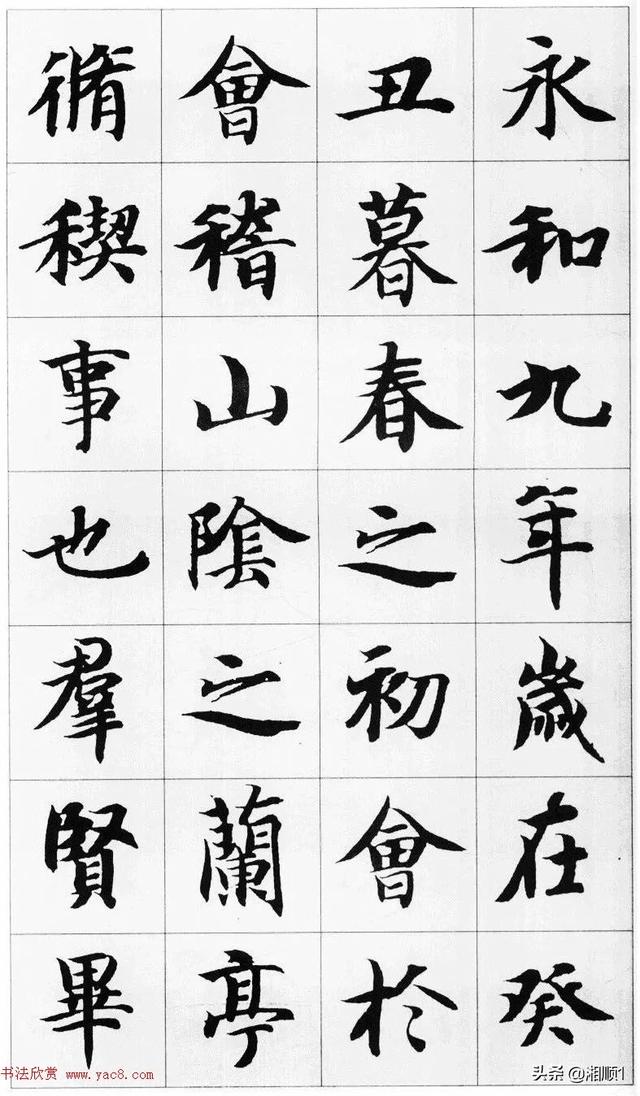 永和九年歲在癸
丑暮春之初會於
會稽山陰之蘭亭
脩稧事也羣賢畢
书法欣赏 www.yac8.com
头条@湘顺1